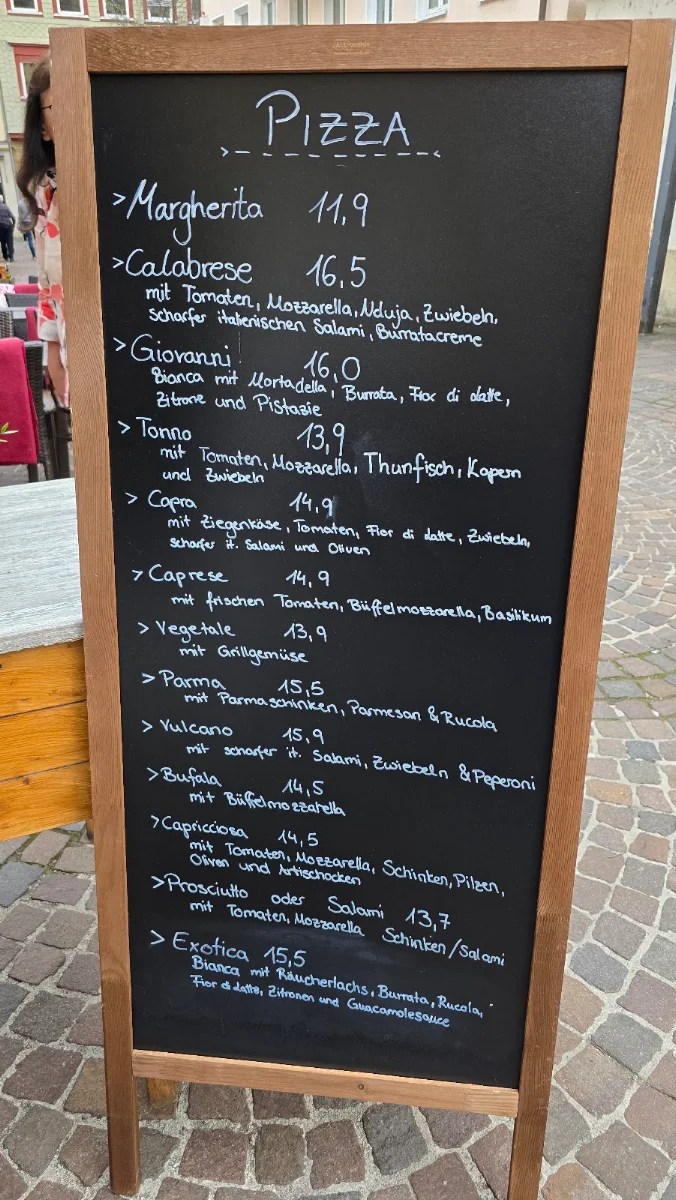 PIZZA
> Margherita 11,9
> Calabrese 16,5
mit Tomaten, Mozzarella, Nduja, Zwiebeln,
scharfer italienischen Salami, Burratacreme
> Giovanni 16,0
Bianca mit Mortadella, Burrata, Fior di latte,
Zitrone und Pistazie
> Tonno 13,9
mit Tomaten, Mozzarella, Thunfisch, Kapern
und Zwiebeln
> Capra 14,9
mit Ziegenkäse, Tomaten, Fior di latte, Zwiebeln,
scharfer it. Salami und Oliven
> Caprese 14,9
mit frischen Tomaten, Büffelmozzarella, Basilikum
> Vegetale 13,9
mit Grillgemüse
> Parma 15,5
mit Parmaschinken, Parmesan & Rucola
> Vulcano 15,9
mit scharfer it. Salami, Zwiebeln & Peperoni
> Bufala 14,5
mit Büffelmozzarella
> Capricciosa 14,5
mit Tomaten, Mozzarella, Schinken, Pilzen,
Oliven und Artischocken
> Prosciutto oder Salami 13,7
mit Tomaten, Mozzarella Schinken/Salami
> Exotica 15,5
Bianca mit Räucherlachs, Burrata, Rucola,
Fior di latte, Zitronen und Guacamolesauce